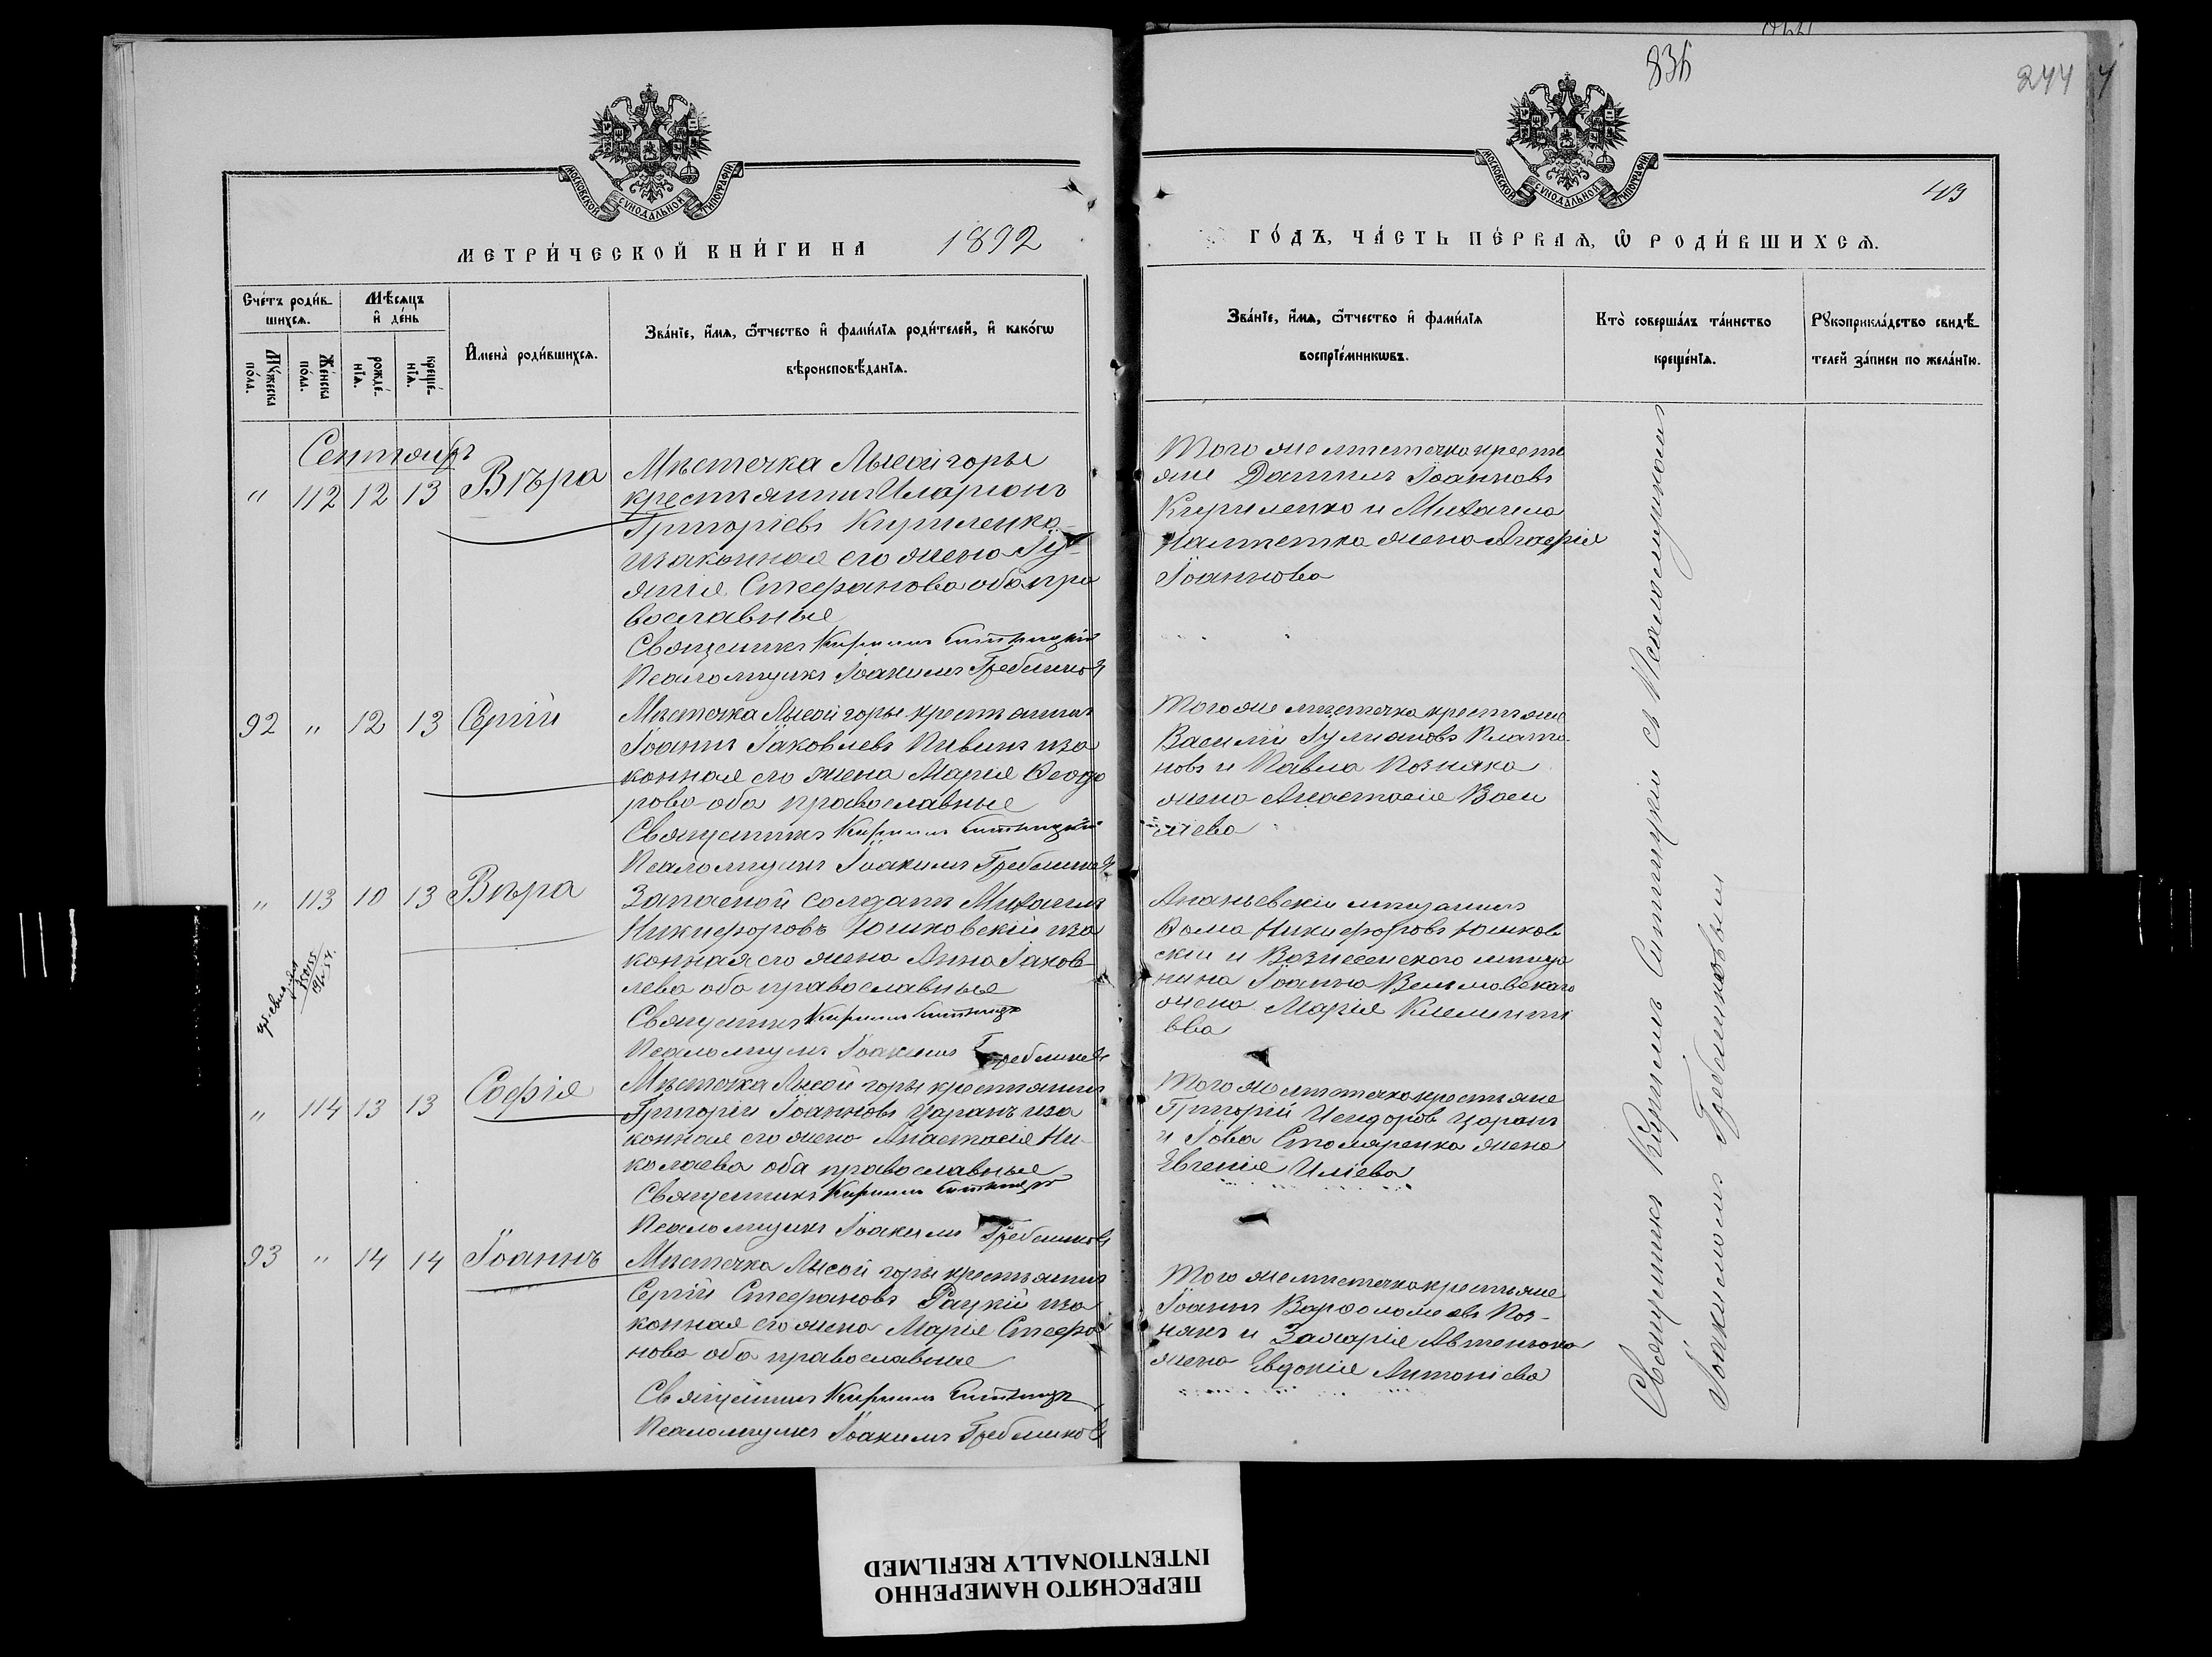 836
244
МОСКОВСКОЙ СУНОДАЛЬНОЙ ТИПОГРАФІИ
МОСКОВСКОЙ СУНОДАЛЬНОЙ ТИПОГРАФІИ
МЕТРИ́ЧЕСКОЙ КНИ́ГИ НА 1892
ГО́ДЪ, ЧА́СТЬ ПЕ́РВАѦ, Ѡ РОДИ́ВШИХСѦ.
Сче́тъ роди́в-
шихсѧ.
Мꙋ́жеска по́ла.
Же́нска по́ла.
Мѣ́сѧцъ
и҆ де́нь
рожде́-
нїѧ.
креще́-
нїѧ.
И҆мена̀ роди́вшихсѧ.
Зва́нїе, и҆́мѧ, ѻ҆́тчество и҆ фами́лїѧ роди́телей, и҆ како́гѡ
вѣроисповѣ́данїѧ.
Зва́нїе, и҆́мѧ, ѻ҆́тчество и҆ фами́лїѧ
воспрїе́мникѡвъ.
Кто̀ соверша́лъ та́инство
креще́нїѧ.
Рꙋкоприкла́дство свидѣ́-
телей за́писи по жела́нїю.
Сентябрь
" 112 12 13 Вѣра
Мѣстечка Лысой горы
крестьянинъ Иларіонъ
Григоріевъ Кириленко
и законная его жена Іу-
Стефанова оба пра
вославные
Священникъ Кириллъ Ситницкій
Псаломщикъ Іоакимъ Гребенниковъ
Того же мѣстечка кресть
яне Даніилъ Іоанновъ
Кириленко и Михаила
жена Агафія
Іоаннова
92 " 12 13 Сергій
Мѣстечка Лысой горы крестьянинъ
Іоаннъ Іаковлевъ Пивень и за
конная его жена Марія Ѳеодо
рова оба православные
Священникъ Кириллъ Ситницкій
Псаломщикъ Іоакимъ Гребенниковъ
Того же мѣстечка крестьяне
Василій Іуліановъ Плато-
новъ и Павла Позняка
жена Анастасія Васи
ліева
" 113 10 13 Вѣра
Запасной солдатъ Михаилъ
Никифоровъ Юшковскій и за
конная его жена Анна Іаков-
лева оба православные
Священникъ Кириллъ Ситницк
Псаломщикъ Іоакимъ Гребенниковъ
Ананьевскій мѣщанинъ
Ѳома Никифоровъ Юшков
скій и Вознесенского мѣща
нина Іоанна
жена Марія Климентіе
ва
" 114 13 13 Софія
Мѣстечка Лысой горы крестьянинъ
Григорій Іоанновъ Царанъ и за
конная его жена Анастасія Ни-
колаева оба православные
Священникъ Кириллъ Ситницк
Псаломщикъ Іоакимъ Гребенниковъ
Того же мѣстечка крестьяне
Григорій Исидоровъ Царанъ
и Іова Столяренка жена
Евгенія Иліева
93 " 14 14 Іоаннъ
Мѣстечка Лысой горы крестьянинъ
Сергій Стефановъ Рацкій и за
конная его жена Марія Стефа
нова оба православные
Священникъ Кириллъ Ситницк
Псаломщикъ Іоакимъ Гребенниковъ
Того же мѣстечка крестьяне
Іоаннъ Варѳоломеевъ Поз-
някъ и Захарія
жена Евдокія Антоніева
Священникъ Кириллъ Ситницкій съ Псаломщикомъ
Іоакимомъ Гребенниковымъ
ПЕРЕСНЯТО НАМЕРЕННО
INTENTIONALLY REFILMED